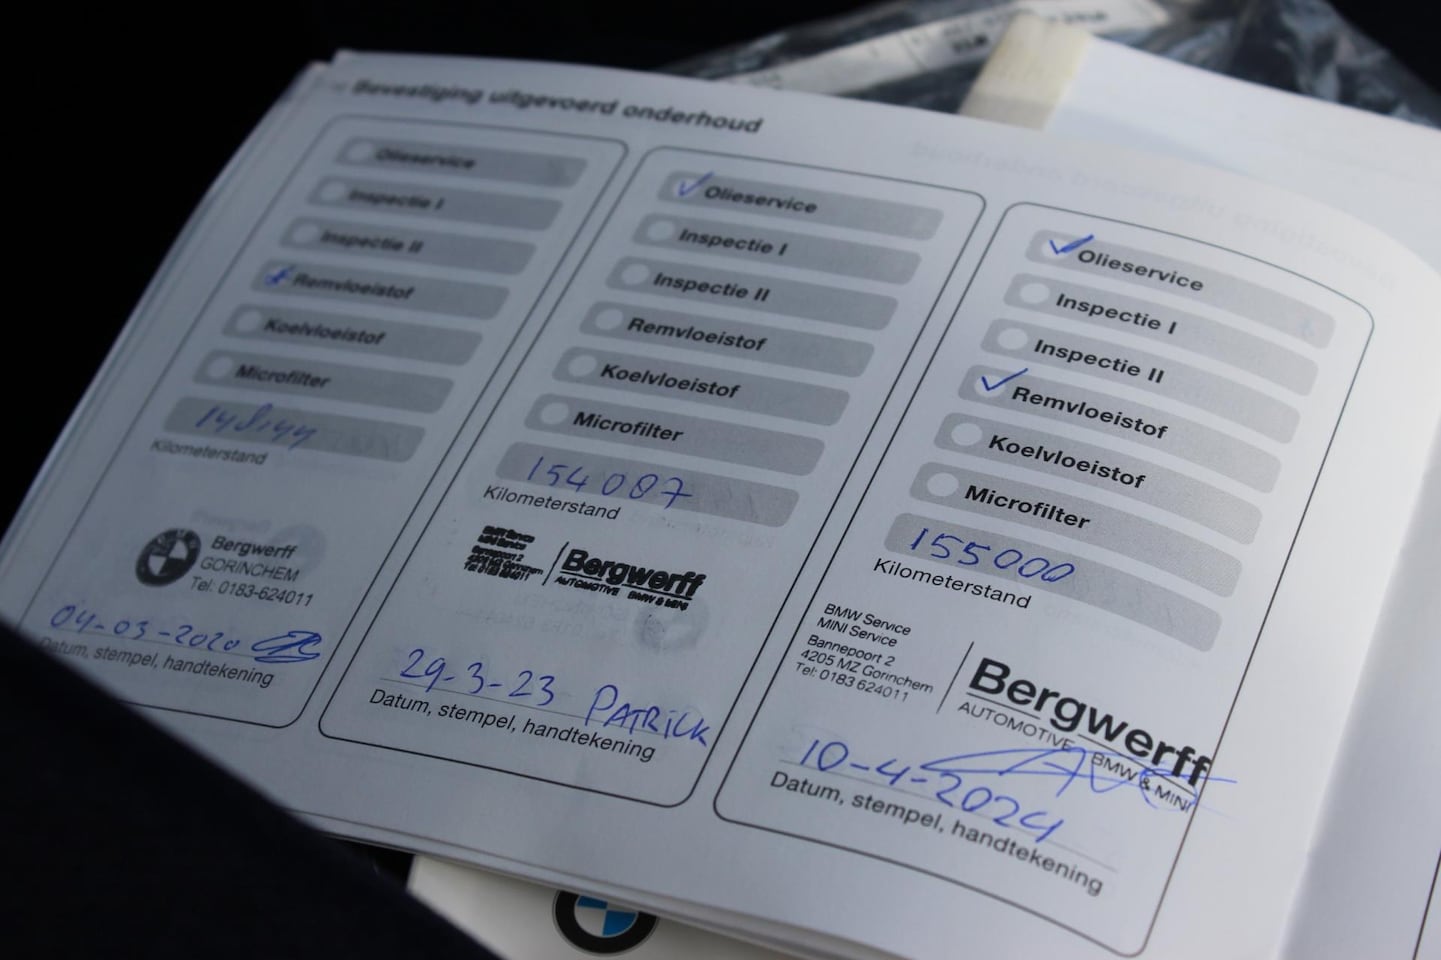 Bevestiging uitgevoerd onderhoud
Olieservice
Inspectie I
Inspectie II
Remvloeistof
Koelvloeistof
Microfilter
Kilometerstand
Bergwerff
GORINCHEM
Tel: 0183-624011
04-03-2020
Datum, stempel, handtekening
Olieservice
Inspectie I
Inspectie II
Remvloeistof
Koelvloeistof
Microfilter
154087
Kilometerstand
BMW Service
MINI Service
Bannepoort 2
4205 MZ Gorinchem
Tel: 0183 624011
Bergwerff
AUTOMOTIVE BMW & MINI
29-3-23 PATRICK
Datum, stempel, handtekening
Olieservice
Inspectie I
Inspectie II
Remvloeistof
Koelvloeistof
Microfilter
155000
Kilometerstand
BMW Service
MINI Service
Bannepoort 2
4205 MZ Gorinchem
Tel: 0183 624011
Bergwerff
AUTOMOTIVE BMW & MINI
10-4-2024
Datum, stempel, handtekening